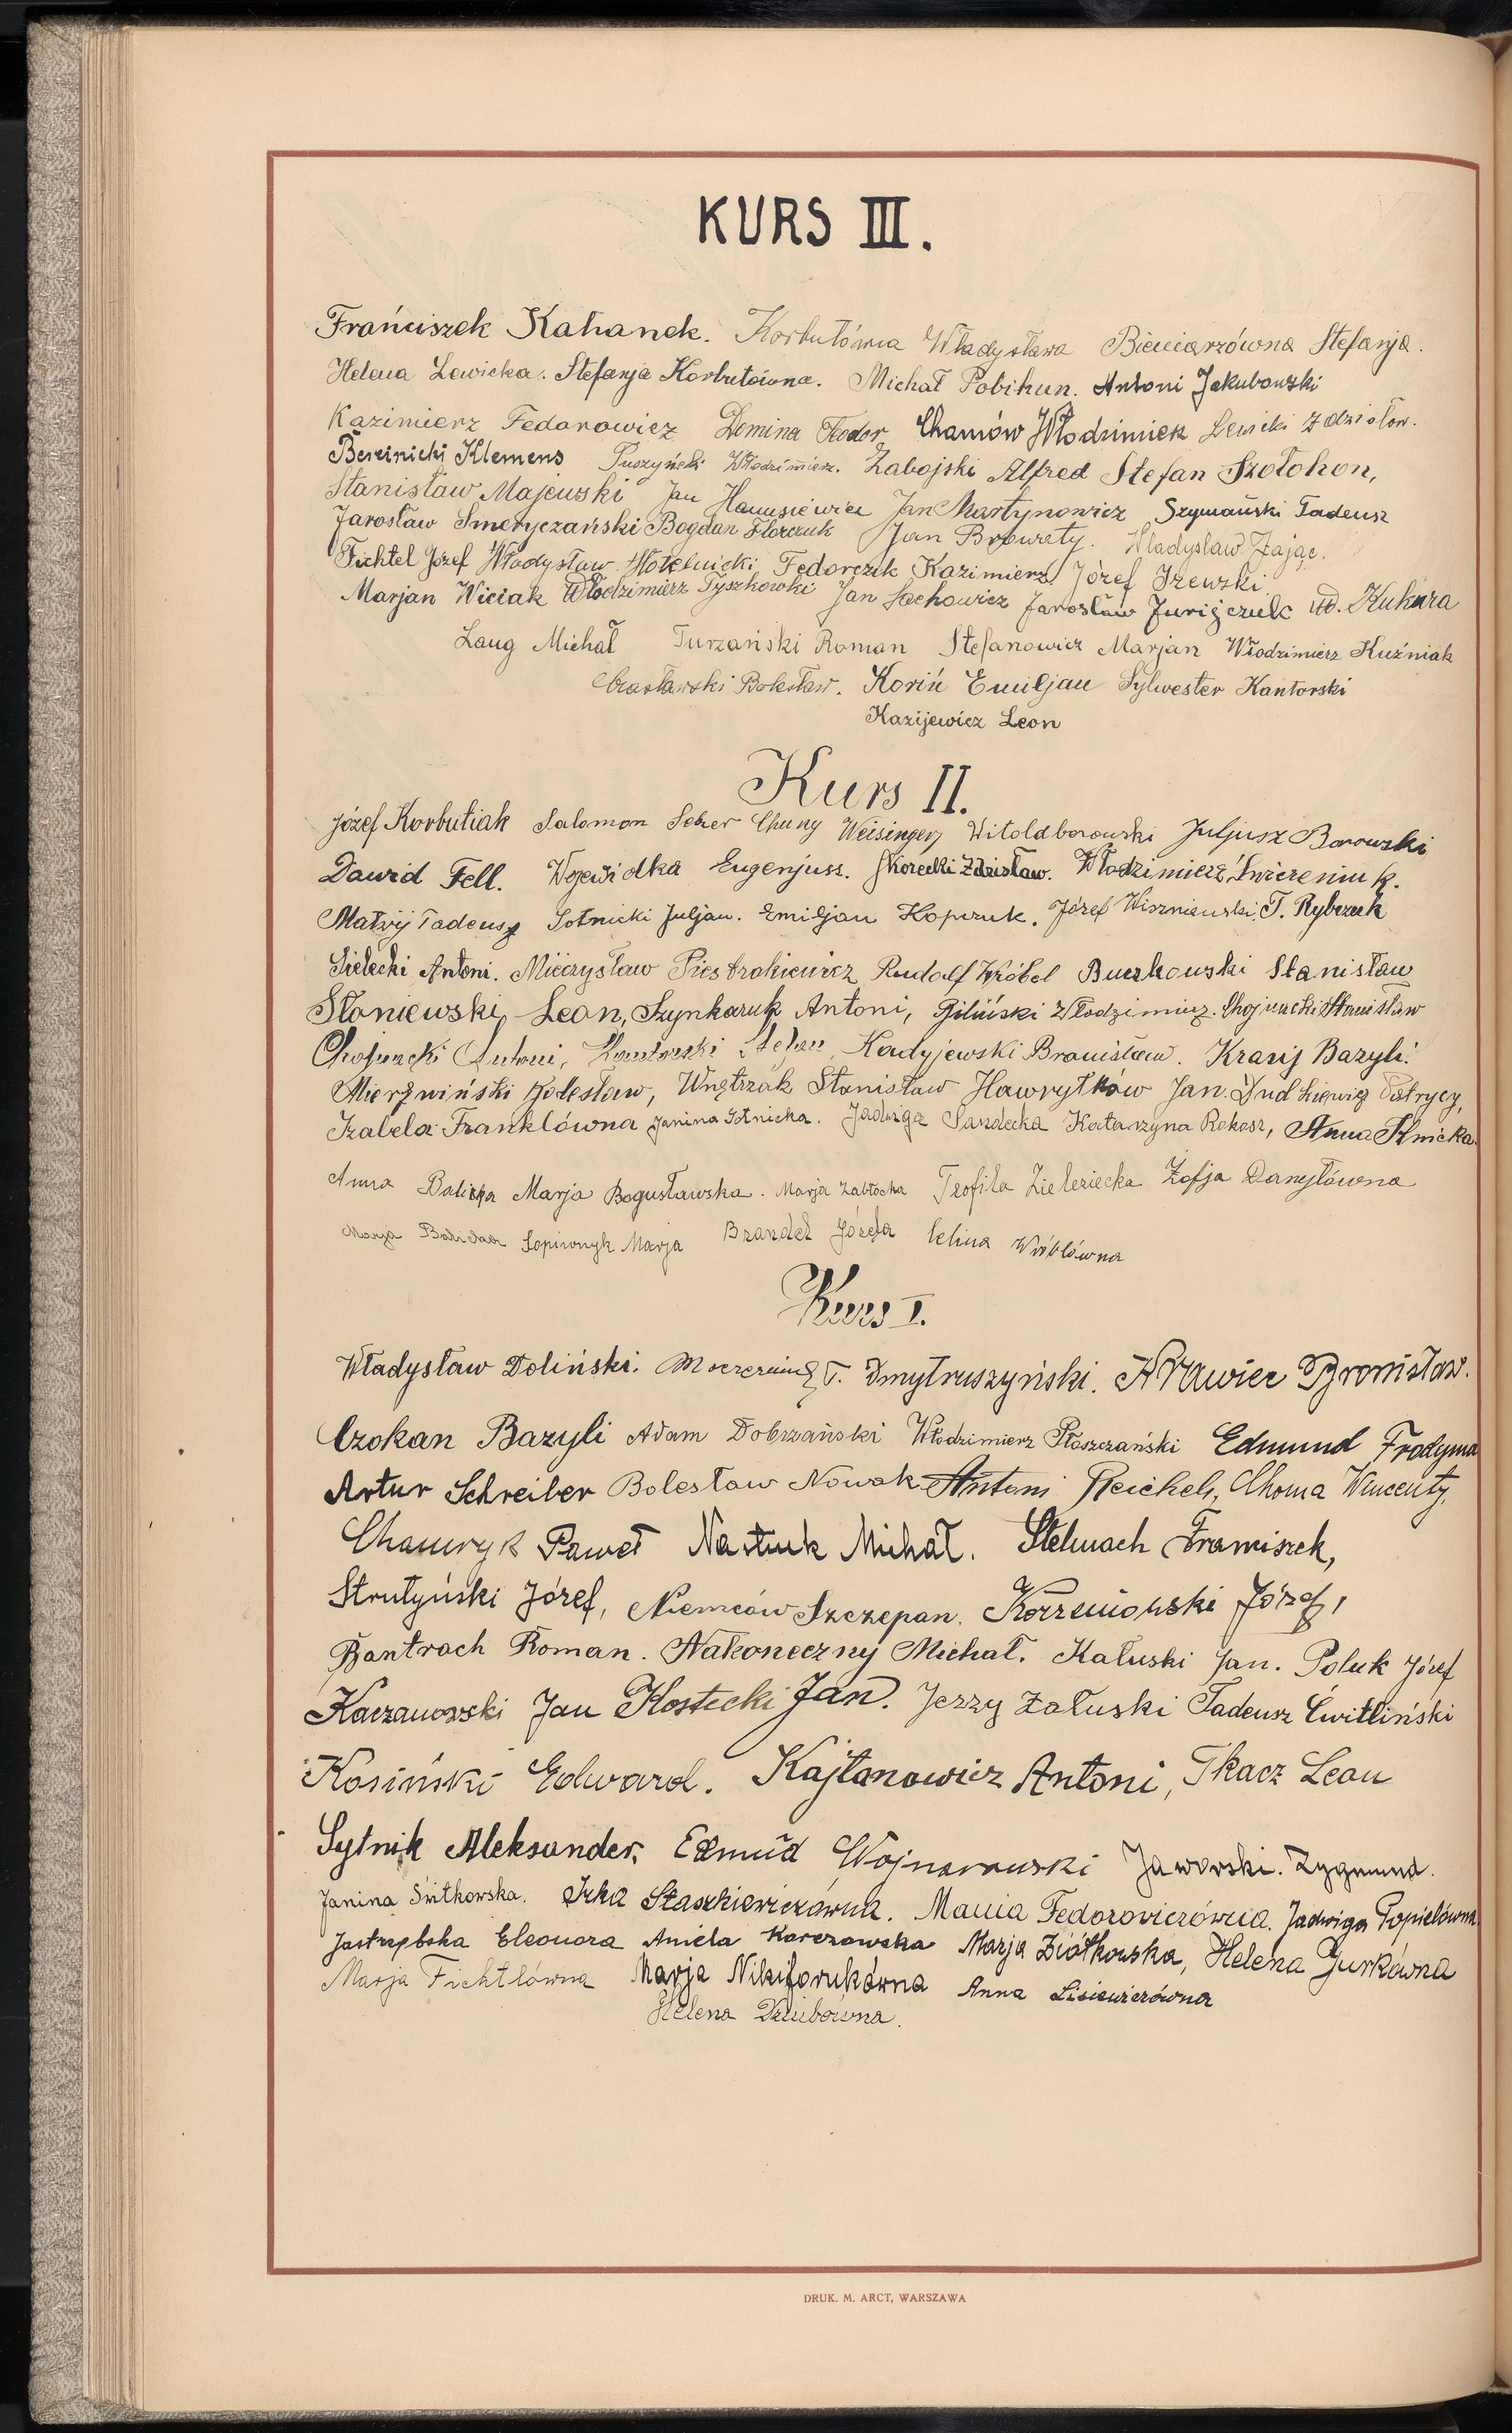 KURS III.
Frańciszek Kahanek. Korbutówna Władysława Bieniarzówna Stefanja.
Helena Lewicka. Stefanja Korbutówna. Michał Pobihun. Antoni Jakubowski
Kazimierz Fedorowicz Domina Teodor Chamów Włodzimiek Lewicki Zdzisław.
Bereźnicki Klemens Puszyński Włodzimierz. Zabojski Alfred Stefan Szołohon,
Stanisław Majewski Jan Hanusiewicz Jan Martynowicz Szymański Tadeusz
Jarosław Smeryczański Bogdan Florczuk Jan Browaty. Władysław Zając.
Fichtel Józef Władysław Hotelnicki Fedorczuk Kazimierz Józef Iżewski
Marjan Wiciak Włodzimierz Tyszkowski Jan Lachowicz Jarosław Jurijczuk Wł. Kuhara
Laug Michał Turzański Roman Stefanowicz Marjan Włodzimierz Kuźniak
Czasławski Bolesław. Koriń Emiljan Sylwester Kantorski
Kazijewicz Leon
Kurs II.
Józef Korbutiak Salomon Seher Chuny Weisinger Witold borowski Juljusz Borowski
Dawid Fell. Wojewidka Eugenjusz. Skorecki Zdzisław. Włodzimierz Świczeniuk.
Matwij Tadeusz Sotnicki Juljan. Emiljan Kopczuk. Józef Wiszniewski, T. Rybczuk
Sielecki Antoni. Mieczysław Piestrakiewicz Rudolf Wróbel Buczkowski Stanisław
Słoniewski Leon, Szynkaruk Antoni, Giliński Włodzimierz. Chojnacki Stanisław
Chojnacki Antoni, Kantorski Stefan Kadyjewski Bronisław. Krasij Bazyli.
Mierzwiński Bolesław, Wnętrzak Stanisław Hawryłków Jan. Dudkiewicz Patrycy,
Izabela Franklówna Janina Sotnicka. Jadwiga Sandecka Katarzyna Rokosz, Anna
Anna Balicka Marja Bogusławska. Marja Zabłocka Teofila Zieleziecka Zofja Danyłówna
Marja Balicka Sopiwnyk Marja Brandel Józefa Celina Wróblówna
Kurs I.
Władysław Doliński. T. Dmytruszyński. Krawiec Bronisław.
Czokan Bazyli Adam Dobrzański Włodzimierz Płoszczański Edmund Frodyma
Artur Schreiber Bolesław Nowak Antoni Reichel, Choma Wincenty,
Chawryk Paweł Nastiuk Michał. Stelmach Franciszek,
Strutyński Józef, Niemców Szczepan. Korzeniowski Józef,
Bantrach Roman. Nakoneczny Michał. Kałuski Jan. Poluk Józef
Kaczanowski Jan Kostecki Jan. Jerzy Załuski Tadeusz Ćwitliński
Kosiński Edward. Kajtanowicz Antoni, Tkacz Leon
Sytnik Aleksander. Edmud Wojnarowski Jaworski. Zygmund.
Janina Świtkowska. Irka Staszkiewiczówna. Mania Fedorowiczówna. Jadwiga Topielówna
Jastrzębska Eleonora Aniela Karczowska Marja Ziółkowska, Helena Jurkówna
Marja Fichtlówna Marja Nikiforukówna Anna Lisiewiczówna
Helena Dziubówna.
DRUK. M. ARCT, WARSZAWA